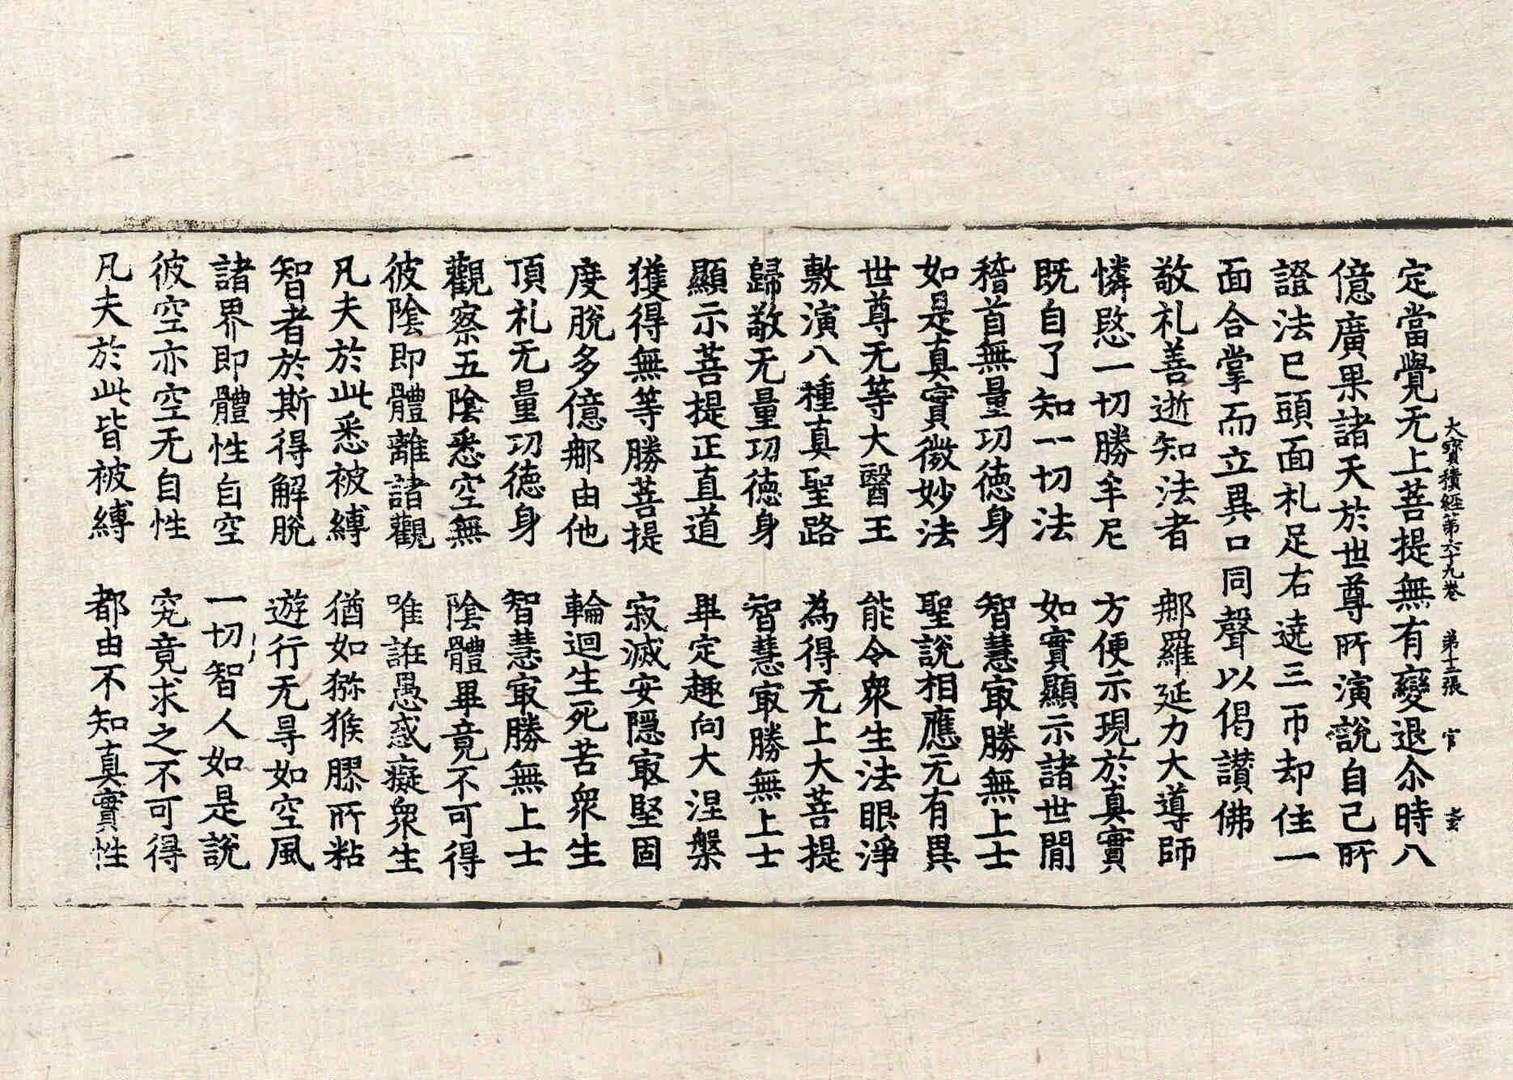 大寶積經第六十九卷　第十二張　官
定當覺无上菩提無有變退尒時八
億廣果諸天於世尊所演說自己所
證法已頭面礼足右遶三帀却住一
面合掌而立異口同聲以偈讃佛
敬礼善逝知法者　那羅延力大導師
憐愍一切勝牟尼　方便示現於真實
既自了知一切法　如實顯示諸世閒
稽首無量功徳身　智慧㝡勝無上士
如是真實微妙法　聖說相應无有異
世尊无等大醫王　能令衆生法眼淨
敷演八種真聖路　為得无上大菩提
歸敬无量功徳身　智慧㝡勝無上士
顯示菩提正直道　畢定趣向大涅槃
獲得無等勝菩提　寂滅安隱㝡堅固
度脫多億那由他　輪迴生死苦衆生
頂礼无量功徳身　智慧㝡勝無上士
觀察五陰悉空無　陰體畢竟不可得
彼陰即體離諸觀　唯誑愚惑癡衆生
凡夫於此悉被縛　猶如獼猴膠所粘
智者於斯得解脫　遊行无㝵如空風
諸界即體性自空　一切智人如是說
彼空亦空无自性　究竟求之不可得
凡夫於此皆被縛　都由不知真實性